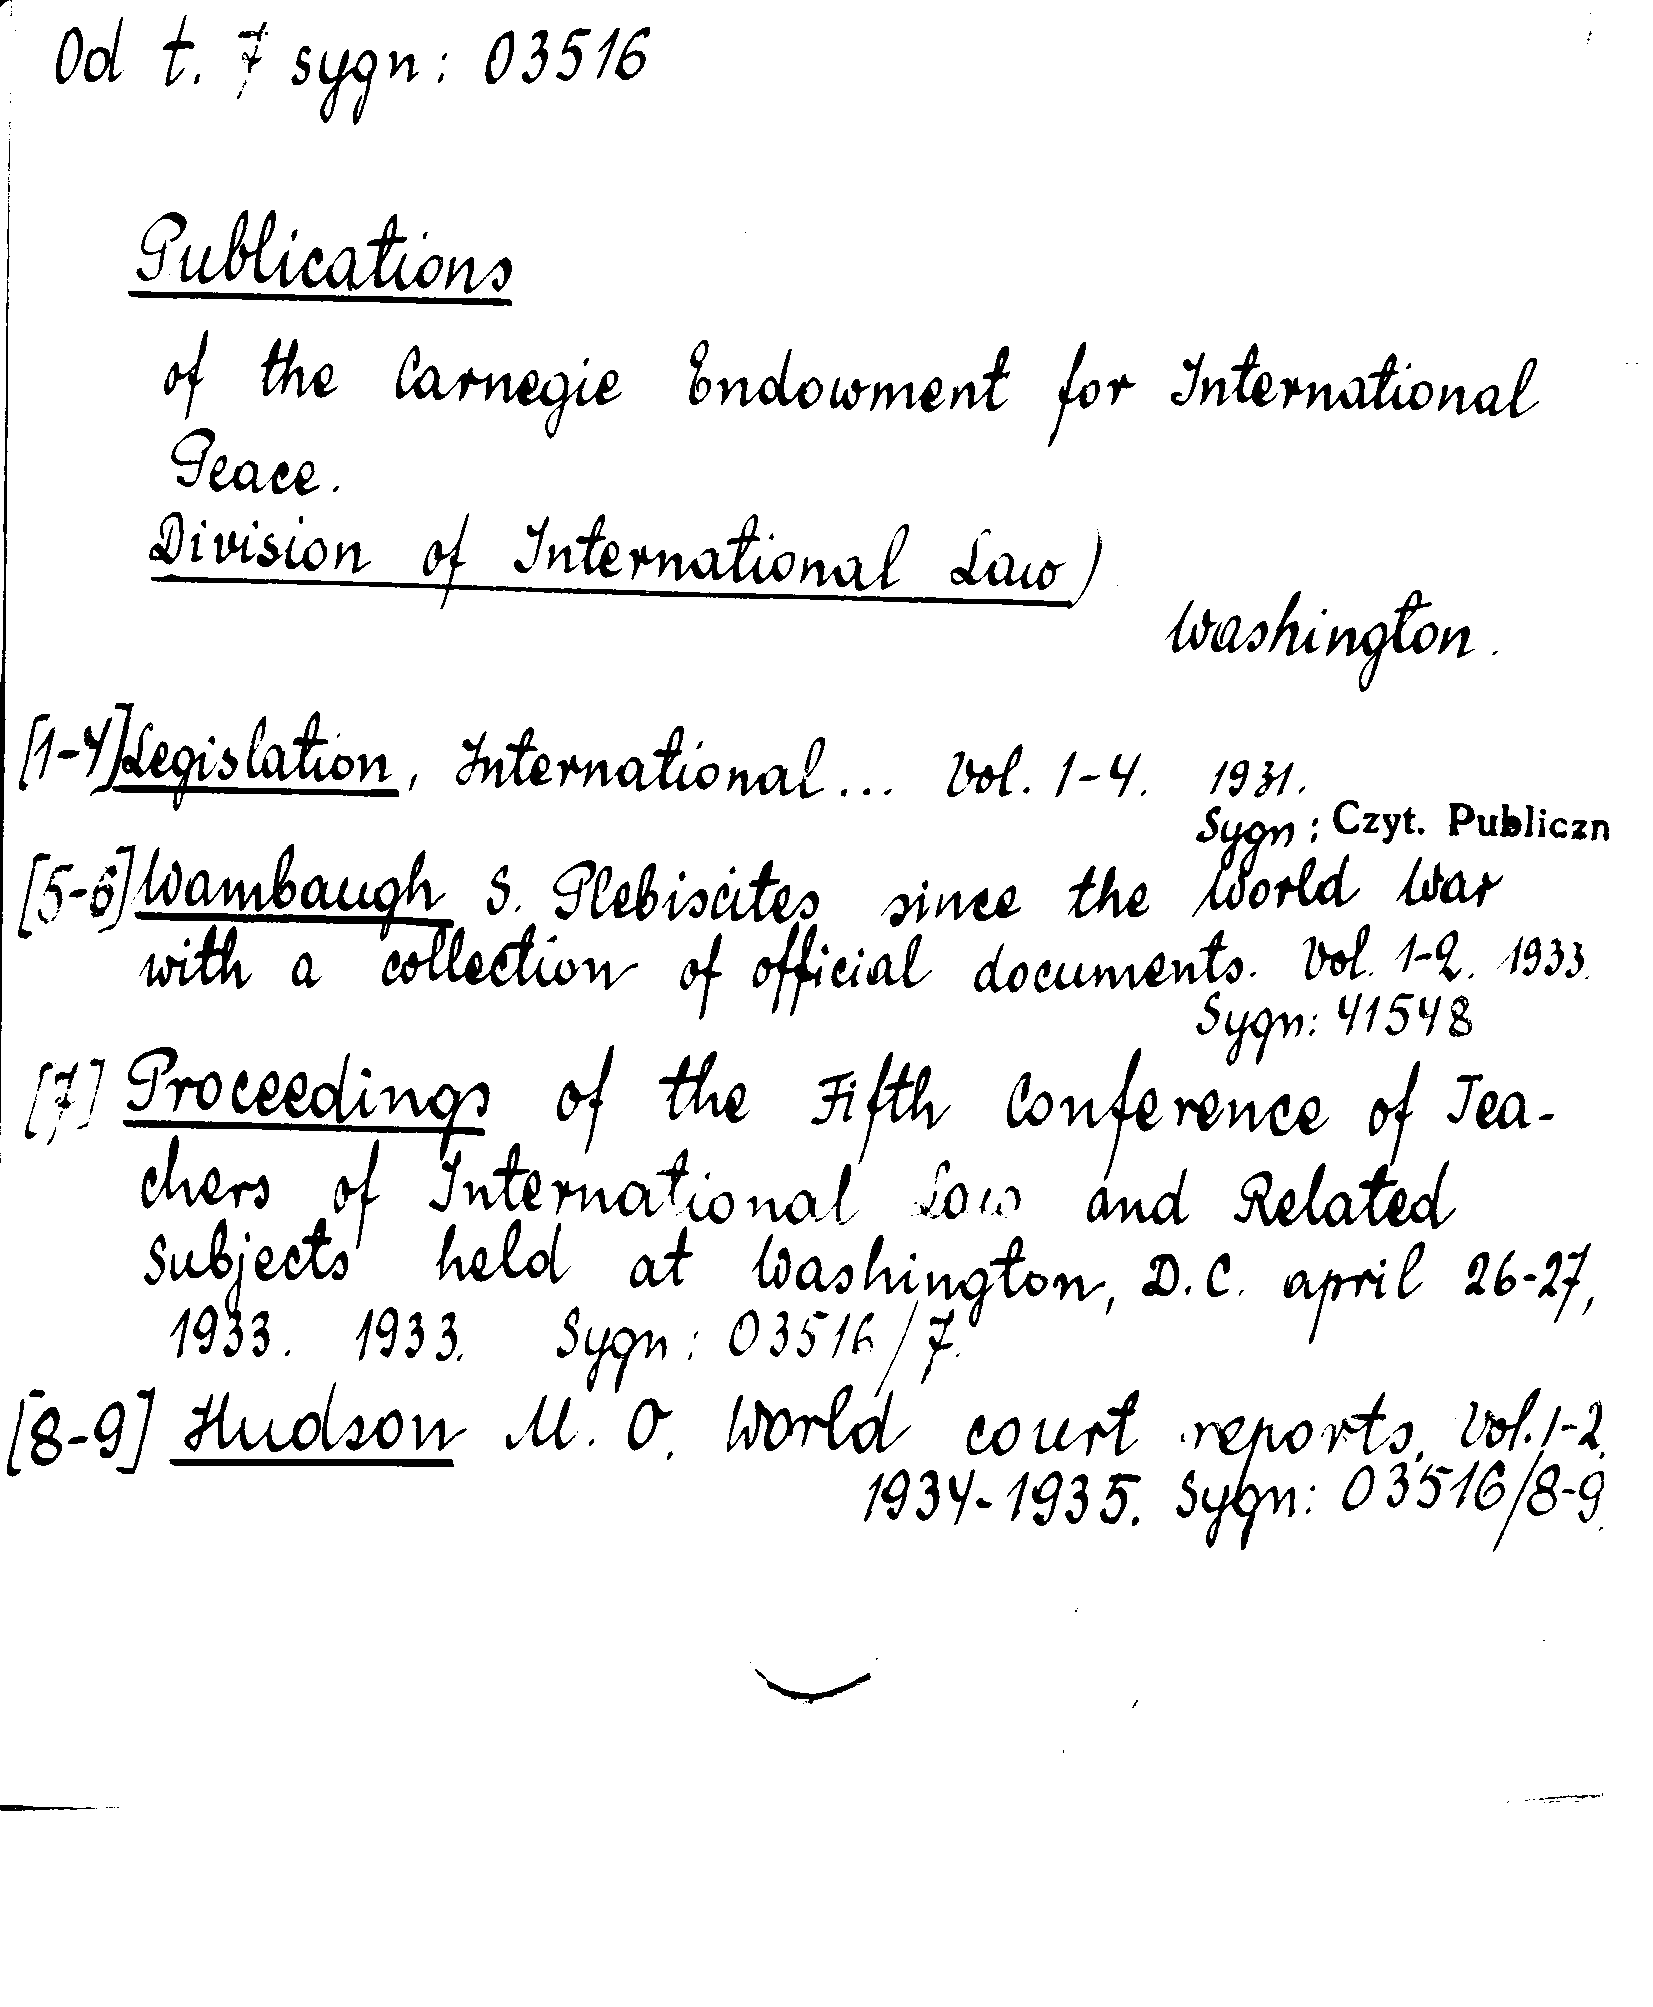 Od t. 7 sygn: 03516
Publications
of the Carnegie Endowment for International
Peace.
Division of International Law)
Washington.
[1-4] Legislation, International... Vol. 1-4. 1931.
Sygn: Czyt. Publiczn
[5-6] Wambaugh S. Plebiscites since the World War
with a collection of official documents. Vol. 1-2. 1933.
Sygn: 41548
[7] Proceedings of the Fifth Conference of Tea-
chers of International Law and Related
Subjects held at Washington, D.C. april 26-27,
1933. 1933. Sygn: 03516/7.
[8-9] Hudson M. O. World court reports. Vol. 1-2.
1934-1935. Sygn: 03516/8-9.